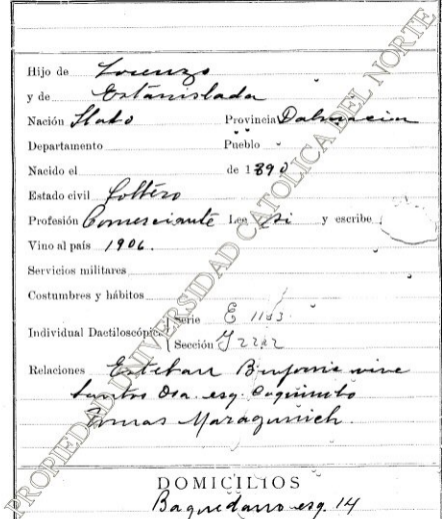 Hijo de Lorenzo
y de Estanislada
Nación Slabo Provincia Dalmacia
Departamento Pueblo
Nacido el de 1890
Estado civil Soltero
Profesión Comerciante Lee si y escribe
Vino al país 1906.
Servicios militares
Costumbres y hábitos
Individual Dactiloscópica Serie E 1113
Sección I 2222
Relaciones Esteban vive
Santos Osa. esq. Coquimbo
Tomas
DOMICILIOS
Baquedano esq. 14
PROPIEDAD UNIVERSIDAD CATOLICA DEL NORTE